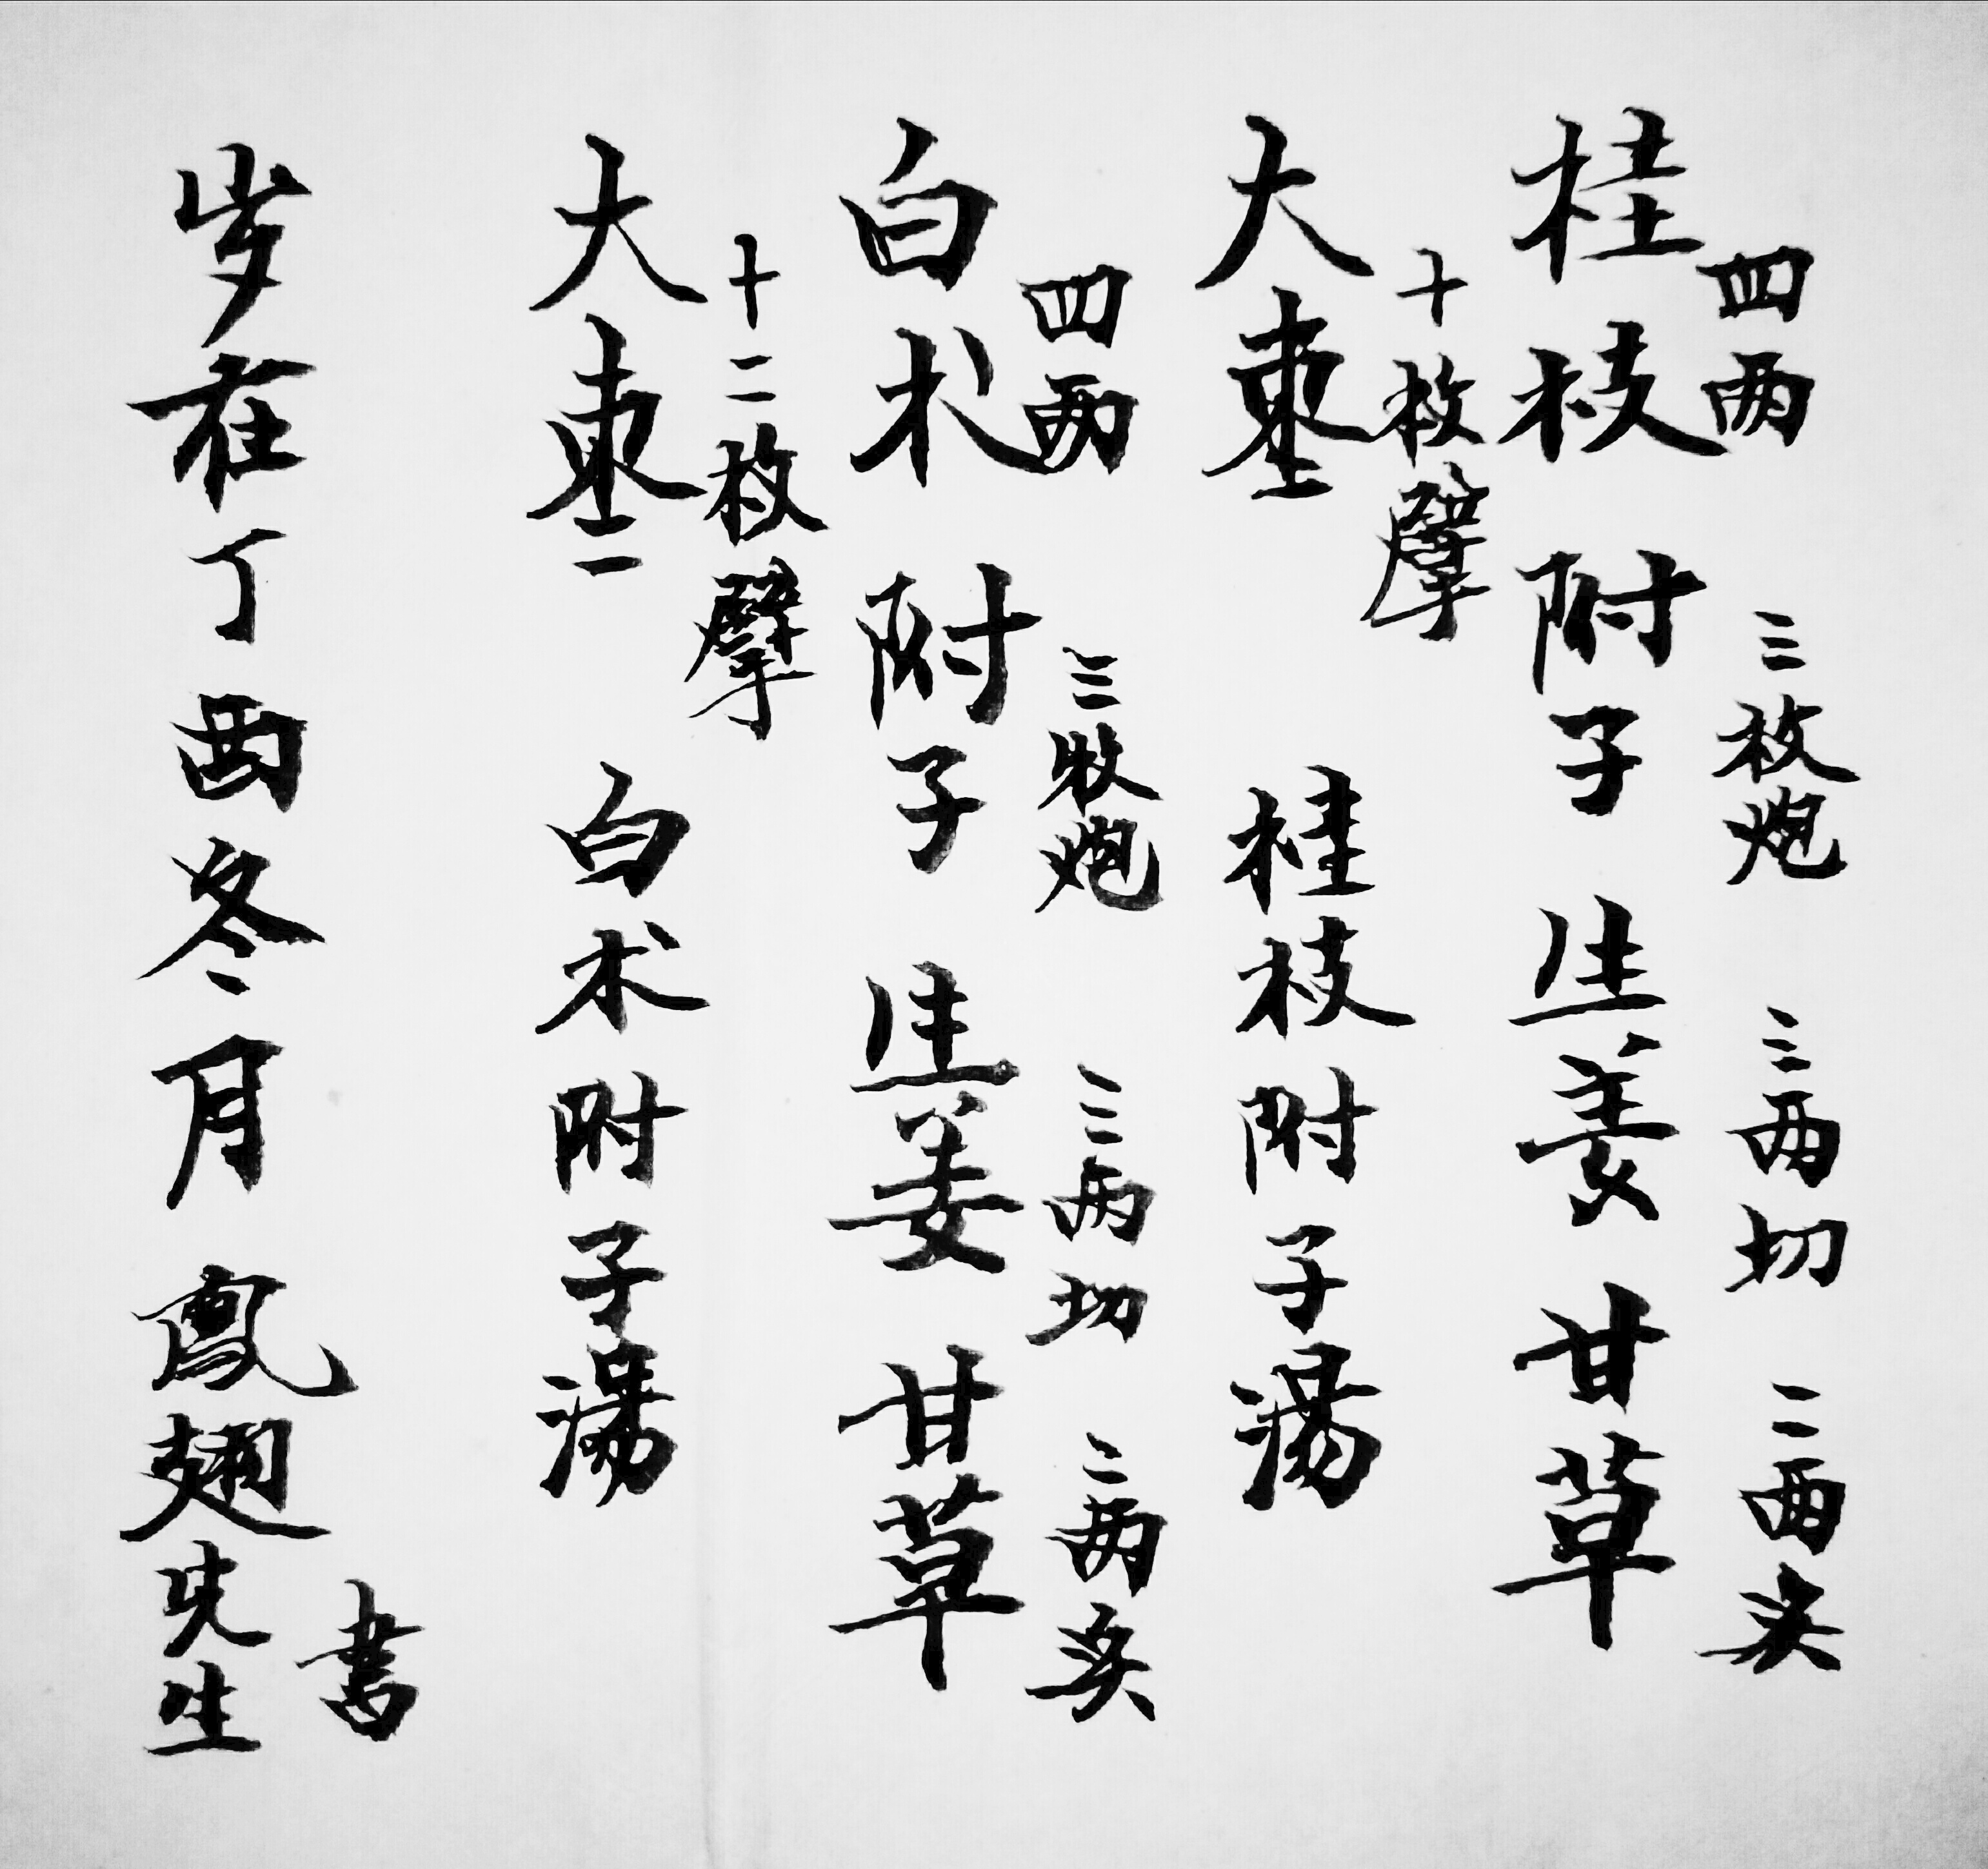 桂枝 附子 生姜 甘草
四两 三枚炮 三两切 二两炙
大枣 桂枝附子湯
十枚擘
白术 附子 生姜 甘草
四两 三枚炮 三两切 二两炙
大枣 白术附子湯
十二枚擘
岁在丁酉冬月 鳳翅先生
書